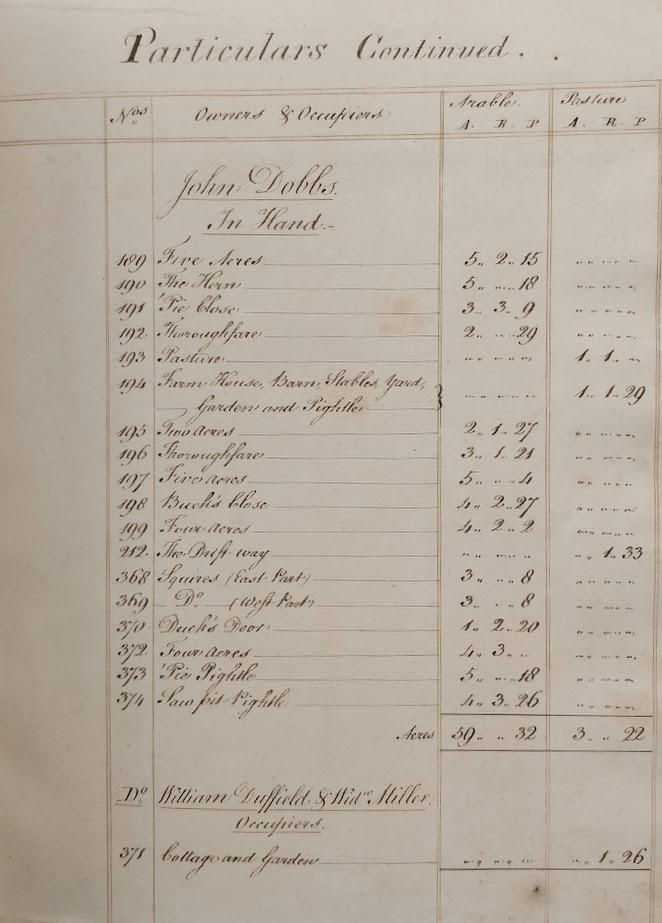 Particulars Continued.
Nos Owners & Occupiers Arable Pasture
A. R. P A. R. P
John Dobbs.
In Hand.-
189 Five Acres 5 .. 2 .. 15 .. .. ..
190 The Horn 5 .. .. 18 .. .. ..
191 'Pie Close 3 .. 3 .. 9 .. .. ..
192 Thoroughfare 2 .. .. 29 .. .. ..
193 Pasture .. .. .. 1 .. 1 .. ..
194 Farm House, Barn, Stables, Yard, } .. .. .. 1 .. 1 .. 29
Garden and Pightle
195 Two Acres 2 .. 1 .. 27 .. .. ..
196 Thoroughfare 3 .. 1 .. 21 .. .. ..
197 Five Acres 5 .. .. 4 .. .. ..
198 Buck's Close 4 .. 2 .. 27 .. .. ..
199 Four Acres 4 .. 2 .. 2 .. .. ..
212. The Drift way .. .. .. .. 1 .. 33
368 Squires (East Part) 3 .. .. 8 .. .. ..
369 Do. (West Part) 3 .. .. 8 .. .. ..
370 Duck's Door 1 .. 2 .. 20 .. .. ..
372 Four Acres 4 .. 3 .. .. .. .. ..
373 'Pie Pightle 5 .. .. 18 .. .. ..
374 Saw pit Pightle 4 .. 3 .. 26 .. .. ..
Acres 59 .. .. 32 3 .. .. 22
Do. William Duffield & Widw. Miller.
Occupiers.
371 Cottage and Garden .. .. .. .. 1 .. 26